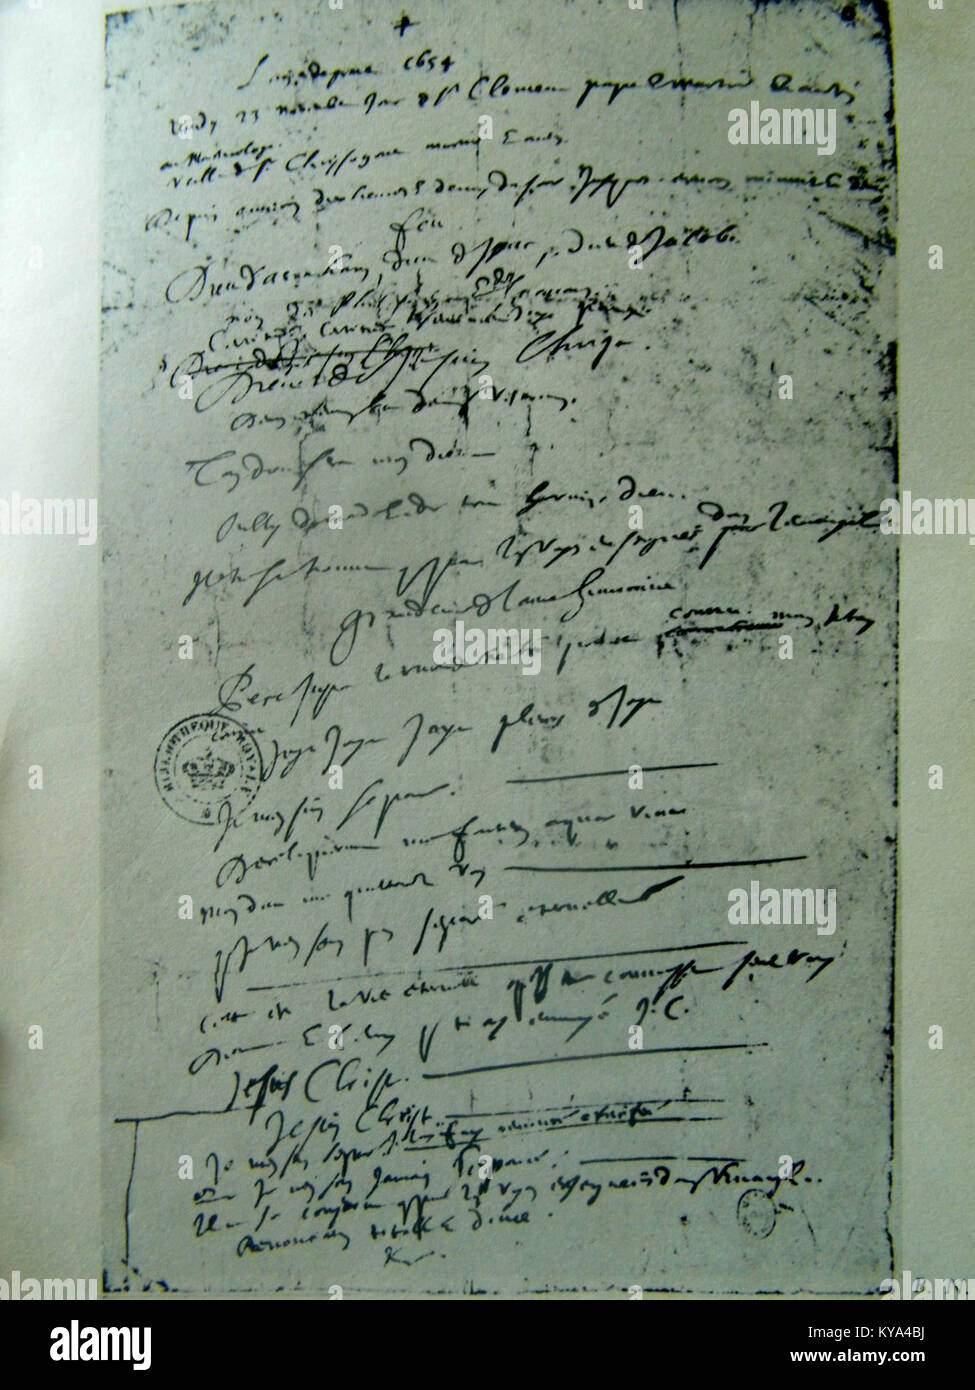 L'an de grace 1654
Lundy 23 novembre jour de St Clement pape et martir et autres
au Martirologe.
Veille de St Chrysogone martir et autres.
Depuis environ dix heures et demy du soir jusques environ minuit et demy
feu
Dieu d'Abraham, Dieu d'Isaac, Dieu de Jacob.
non des Philosophes et des scavans.
Certitude, Certitude
Dieu de Jesus Christ
Dieu de Jesus Christ.
Deum meum et deum vestrum.
Ton Dieu sera mon Dieu
oubly du monde et de tout hormis Dieu.
il ne se trouve que par les voyes enseignées dans l'evangile
grandeur de l'ame humaine
Pere juste le monde ne t'a point connu mais je t'ay
connu
Joye Joye Joye pleurs de joye
Je m'en suis separé.
Dereliquerunt me fontem aquae vivae
mon Dieu me quitterez vous
que je n'en sois pas separé eternellement
Cette est la vie eternelle qu'ils te connoissent seul vray
Dieu et celuy que tu as envoyé J.C.
Jesus Christ.
Jesus Christ
Je m'en suis separé je l'ay fui renoncé crucifié
que Je n'en sois jamais separé.
Il ne se conserve que par les voyes enseignées dans l'Evangile.
Renonciation totale et douce.
BIBLIOTHEQUE ROYALE
B. N.
alamy
a
alamy stock photo
KYA4BJ
www.alamy.com